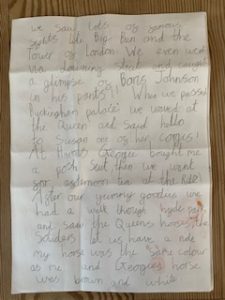 we saw lots of famous
sights like Big Ben and the
Tower of London. We even went
down street and caught
a glimpse of Boris Johnson
in his pants!! When we passed
Buckingham palace we waved at
the Queen and said hello
to Susan one of her corgies!
At Harrods Georgie bought me
a posh then we went
for afternoon tea at the Ritz!
After our yummy goodies we
had a walk though hyde park
and saw the Queens horses, the
Soliders let us have a ride
my horse was the same colour
as me and Georgies horse
was brown and white